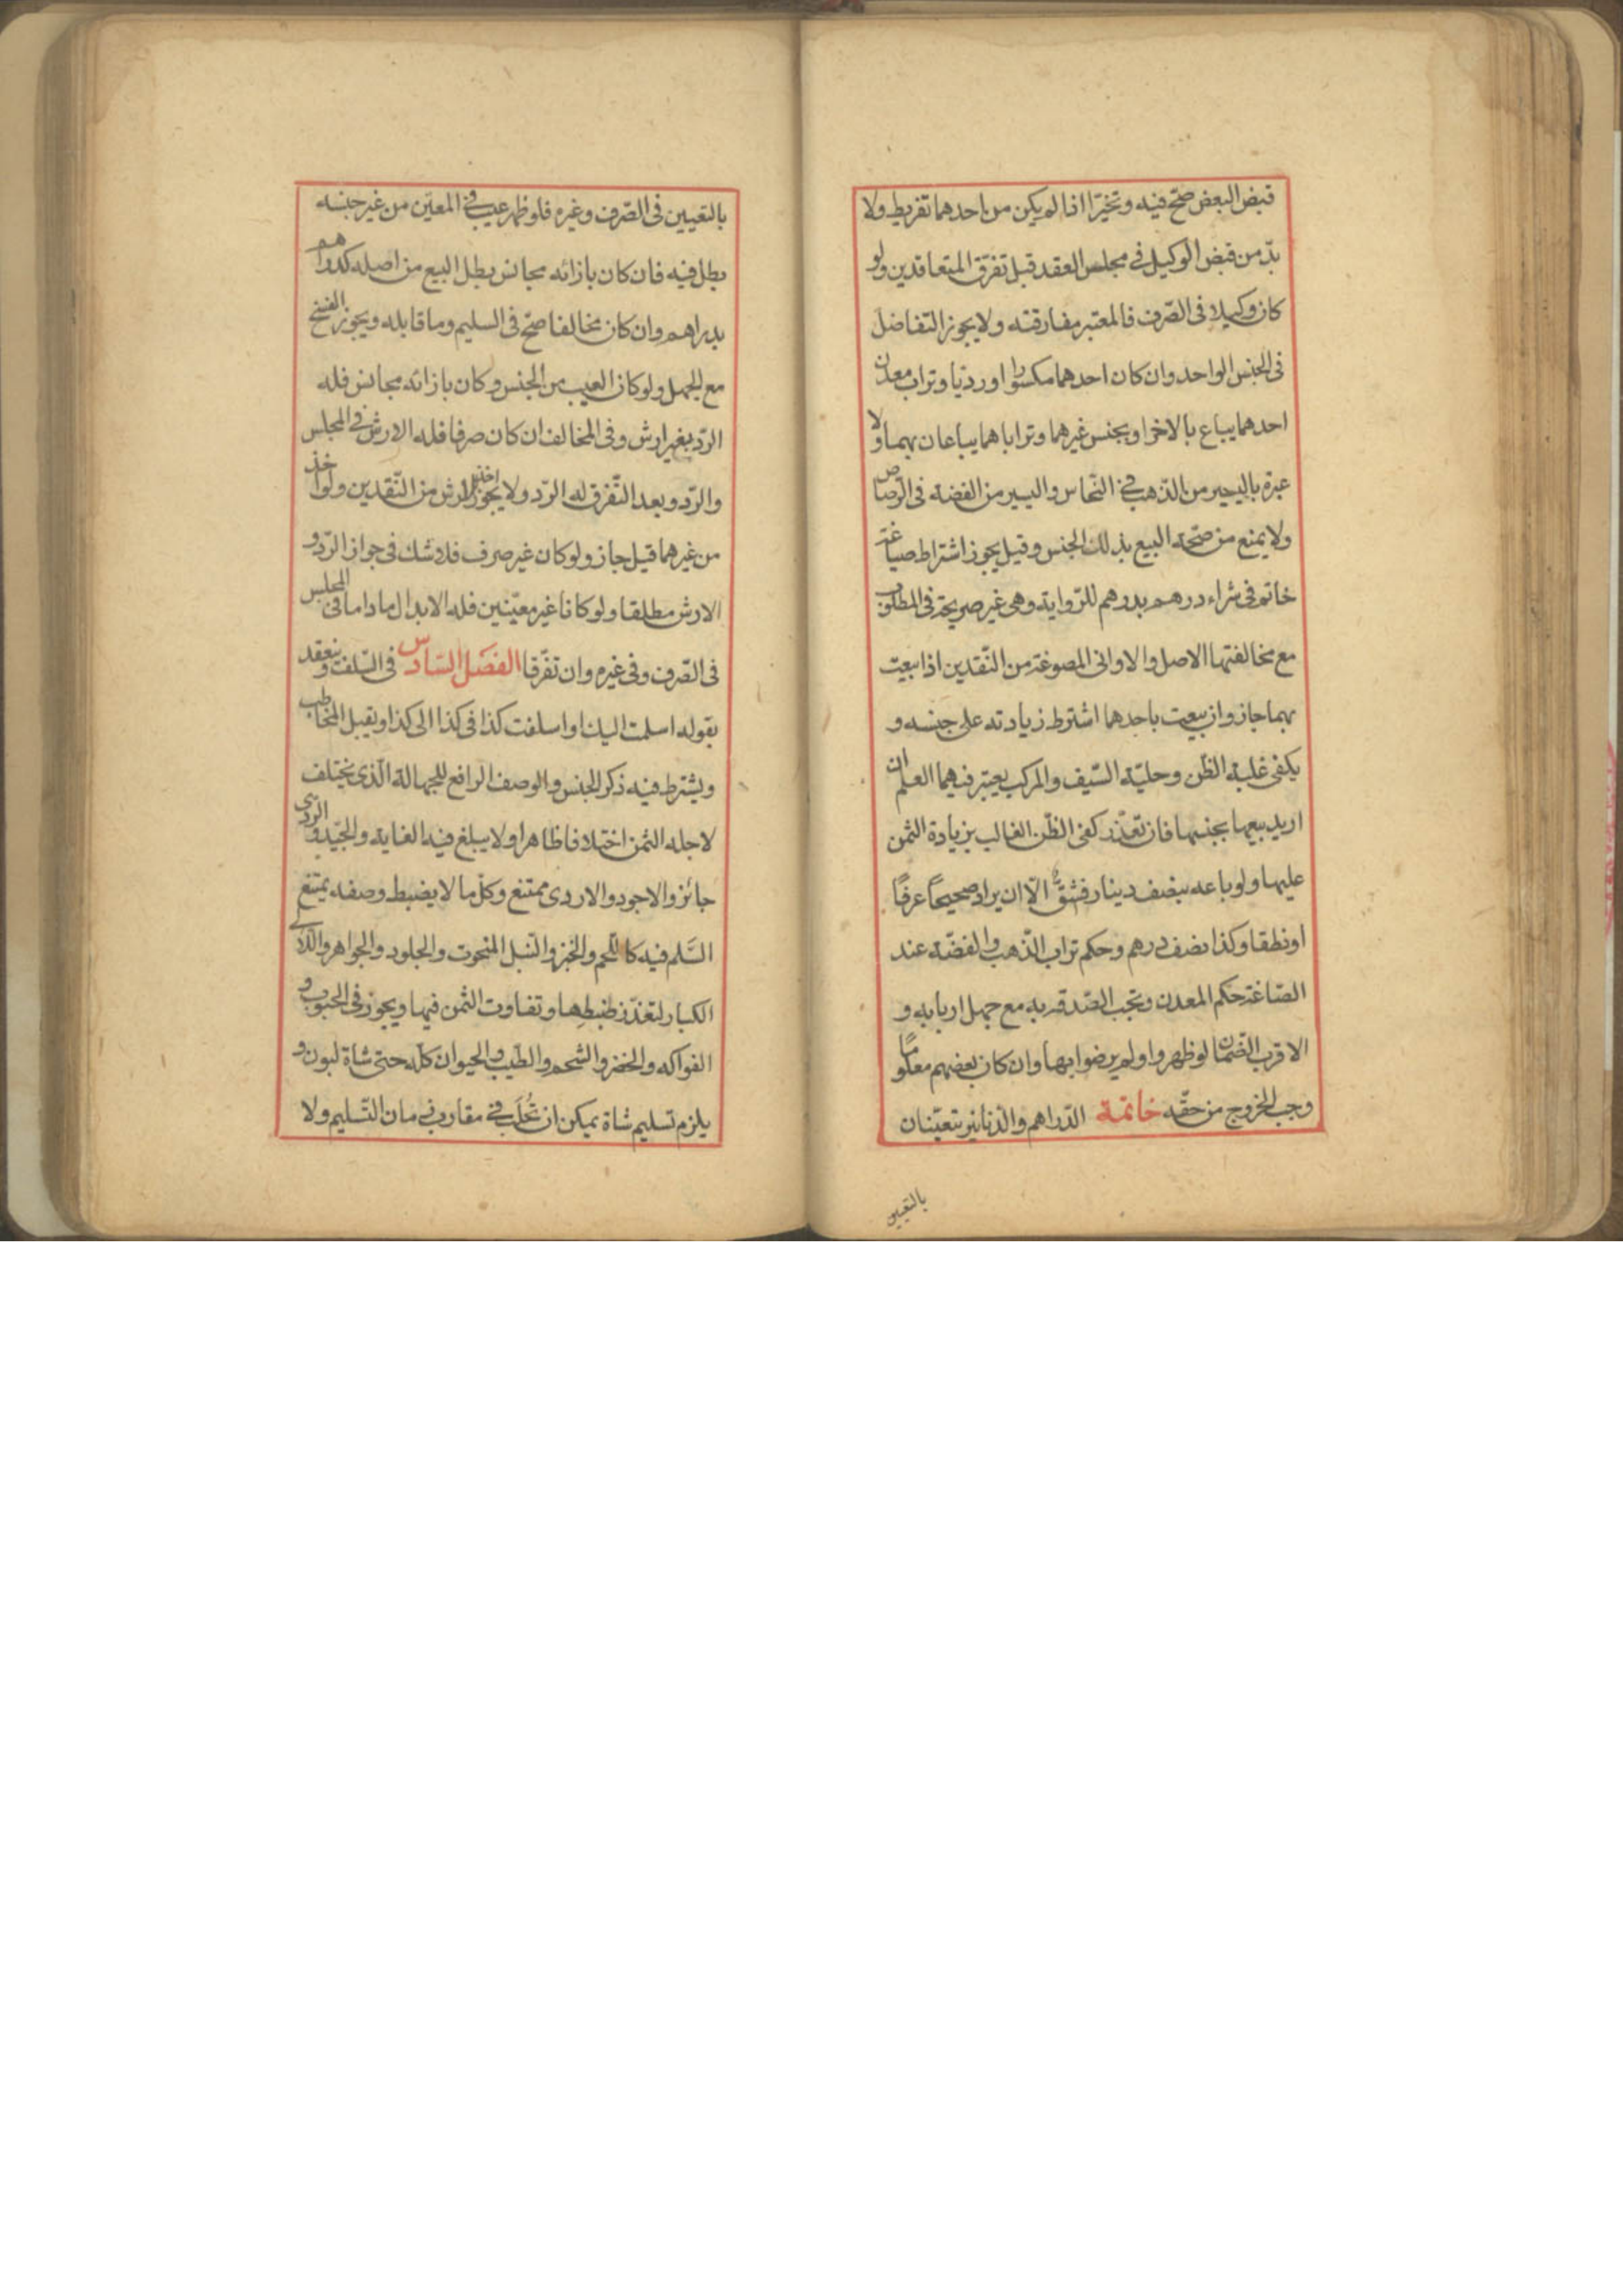 قبض البعض صحّ فيه و تخيّرا اذا لم يكن من احدهما تفريط ولا
بدّ من قبض الوكيل فى مجلس العقد قبل تفرّق المتعاقدين ولو
كان وكيلا فى الصّرف فالمعتبر مفارقته ولا يجوز التفاضل
فى الجنس الواحد وان كان احدهما مكسورا او رديّا وتراب معدن
احدهما يباع بالاخر او بجنس غيرهما وتراباهما يباعان بهما ولا
عبرة باليسير من الذهب فى النّحاس واليسير من الفضة فى الرّصاص
ولا يمنع من صحّة البيع بذلك الجنس وقيل يجوز اشتراط صياغة
خاتم فى شراء درهم بدرهم للرّواية وهى غير صريحة فى المطلوب
مع مخالفتها الاصل والاوانى المصوغة من النّقدين اذا بيعت
بهما جاز وان بيعت باحدهما اشترط زيادته على جنسه و
يكفى غلبة الظن وحليّة السّيف والمركب يعتبر فيهما العلم ان
اريد بيعها بجنسها فان تعذّر كفى الظّن الغالب بزيادة الثمن
عليها ولو باعه بنصف دينار فشقّ الّا ان يراد صحيحًا عرفًا
او نطقا وكذا نصف درهم وحكم تراب الذّهب والفضّة عند
الصّاغة حكم المعدن وتجب الصّدقة به مع جهل اربابه و
الاقرب الضّمان لو ظهروا ولم يرضوا بها وان كان بعضهم معلومًا
وجب الخروج من حقّه خاتمة الدّراهم والدّنانير تتعيّنان
بالتعيين
بالتعيين فى الصّرف وغيره فلو ظهر عيب فى المعيّن من غير جنسه
بطل فيه فان كان بازائه مجانس بطل البيع من اصله كدراهم
بدراهم وان كان مخالفا صحّ فى السليم وما قابله ويجوز الفسخ
مع الجهل ولو كان العيب من الجنس وكان بازائه مجانس فله
الرّد بغير ارش وفى المخالف ان كان صرفا فله الارش فى المجلس
والرّد وبعد التّفرق له الرّد ولا يجوز اخذ الارش من النّقدين ولو اخذ
من غيرهما قيل جاز ولو كان غير صرف فلا شك فى جواز الرّد و
الارش مطلقا ولو كانا غير معيّنين فله الابدال ما داما فى المجلس
فى الصّرف وفى غيره وان تفرّقا الفصل السّادس فى السّلف وينعقد
بقوله اسلمت اليك او اسلفت كذا فى كذا الى كذا ويقبل المخاطب
ويشترط فيه ذكر الجنس والوصف الرافع للجهالة الّذى يختلف
لاجله الثمن اختلافا ظاهرا ولا يبلغ فيه الغاية والجيّد والردّى
جائز والاجود والاردى ممتنع وكلّ ما لا يضبط وصفه يمتنع
السّلم فيه كاللّحم والخبز والنّبل المنحوت والجلود والجواهر واللّآلى
الكبار لتعذّر ضبطها وتفاوت الثمن فيها ويجوز فى الحبوب و
الفواكه والخضر والشحم والطّيب والحيوان كلّه حتى شاة لبون و
يلزم تسليم شاة يمكن ان تُحلَب فى مقارب زمان التّسليم ولا